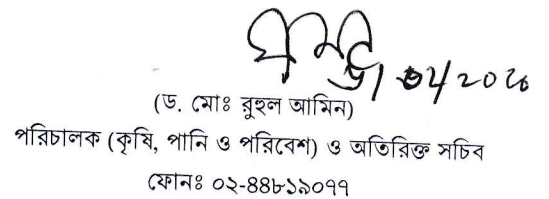 (ড. মোঃ রুহুল আমিন)
পরিচালক (কৃষি, পানি ও পরিবেশ) ও অতিরিক্ত সচিব
ফোনঃ ০২-৪৪৮১৯০৭৭